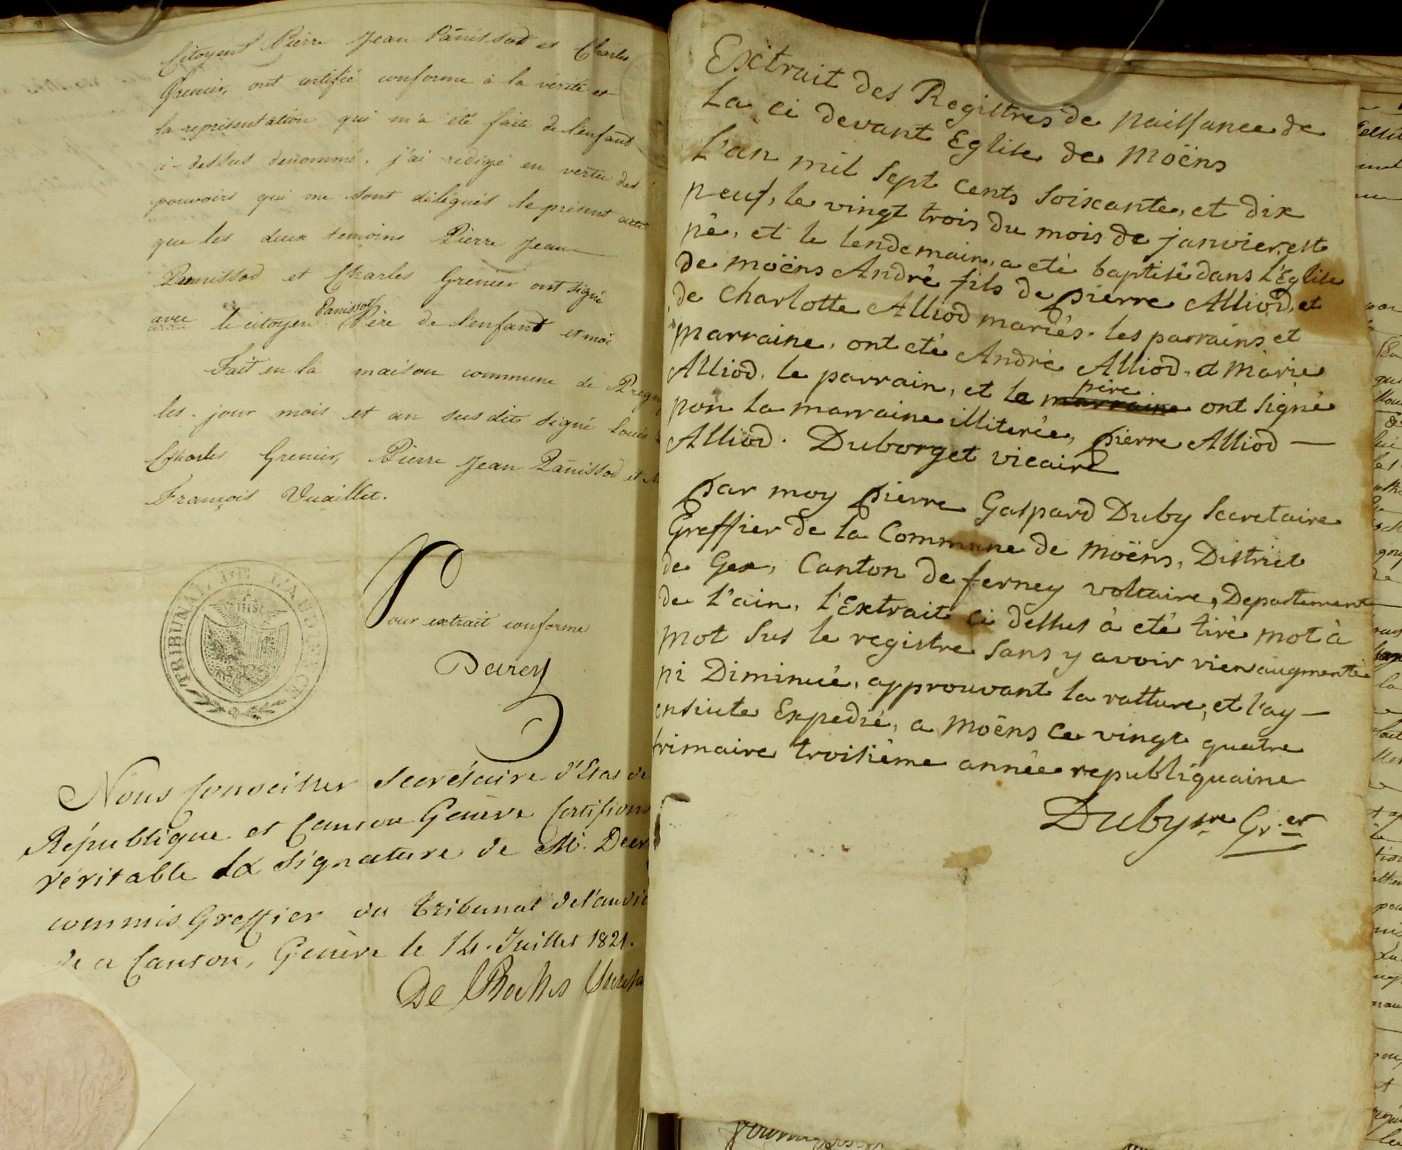 Citoyens Pierre Jean Panissod et Charles
Grenier, ont certifié conforme à la vérité et
la représentation qui m'a été faite de l'enfant
ci-dessus dénommé, j'ai rédigé en vertu des
pouvoirs qui me sont délégués le présent acte
que les deux temoins Pierre Jean
Panissod et Charles Grenier ont signé
avec le citoyen Panissod Père de l'enfant et moi
fait en la maison commune de Pregny
les jour mois et an susdits signé Louis
Charles Grenier, Pierre Jean Panissod et
François Vuaillet.
TRIBUNAL DE L'AUDIENCE
Pour extrait conforme
Nous Conseiller Secrétaire d'Etat de
République et Canton Genève Certifions
véritable la signature de M.
commis Greffier du tribunal de l'audi
de ce Canton, Genève le 14. Juillet 1821.
De Roches
Extrait des Registres de naissance de
La ci devant Eglise de Moëns
L'an mil sept cents soixante, et dix
neuf, le vingt trois du mois de janvier, est
né, et le lendemain, a eté baptisé dans l'Eglise
de moëns André fils de pierre Alliod, et
de Charlotte Alliod mariés. les parrains et
marraine, ont eté André Alliod, et Marie
Alliod. le parrain, et le marraine père ont signé
non la marraine illiterée, pierre Alliod —
Alliod. Duborget vicaire
par moy pierre Gaspard Duby secretaire
Greffier de la Commune de moëns, District
de Gex, Canton de ferney voltaire, Departement
de l'ain, l'Extrait ci dessus à eté tiré mot à
mot sus le registre sans y avoir rien augmenté
ni Diminué, approuvant la ratture, et l'ay —
ensuite Expedié, a moëns ce vingt quatre
frimaire troisième année republiquaine
Duby sre Gr.er